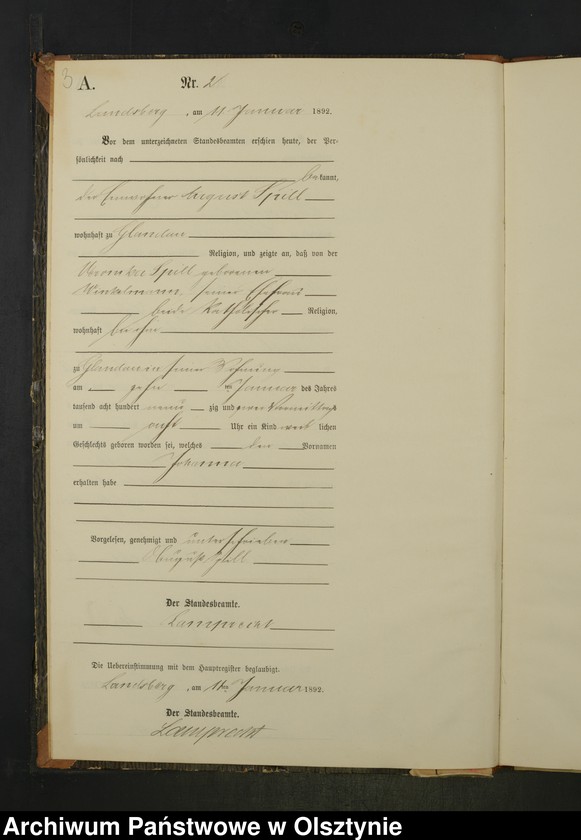 3
A.
Nr. 2
Landsberg, am 11 Januar 1892.
Vor dem unterzeichneten Standesbeamten erschien heute, der Per-
sönlichkeit nach
bekannt,
der Einwohner August Spill
wohnhaft zu Glandau
Religion, und zeigte an, daß von der
Spill geborenen
Winkelmann, seiner Ehefrau
beide katholischer Religion,
wohnhaft bei ihm
zu Glandau in seiner Wohnung
am zehn ten Januar des Jahres
tausend acht hundert neun zig und zwei Vormittags
um acht Uhr ein Kind weib lichen
Geschlechts geboren worden sei, welches den Vornamen
Johanna
erhalten habe
Vorgelesen, genehmigt und unterschrieben
August Spill
Der Standesbeamte.
Lamprecht
Die Uebereinstimmung mit dem Hauptregister beglaubigt.
Landsberg, am 11ten Januar 1892.
Der Standesbeamte.
Lamprecht
Archiwum Państwowe w Olsztynie